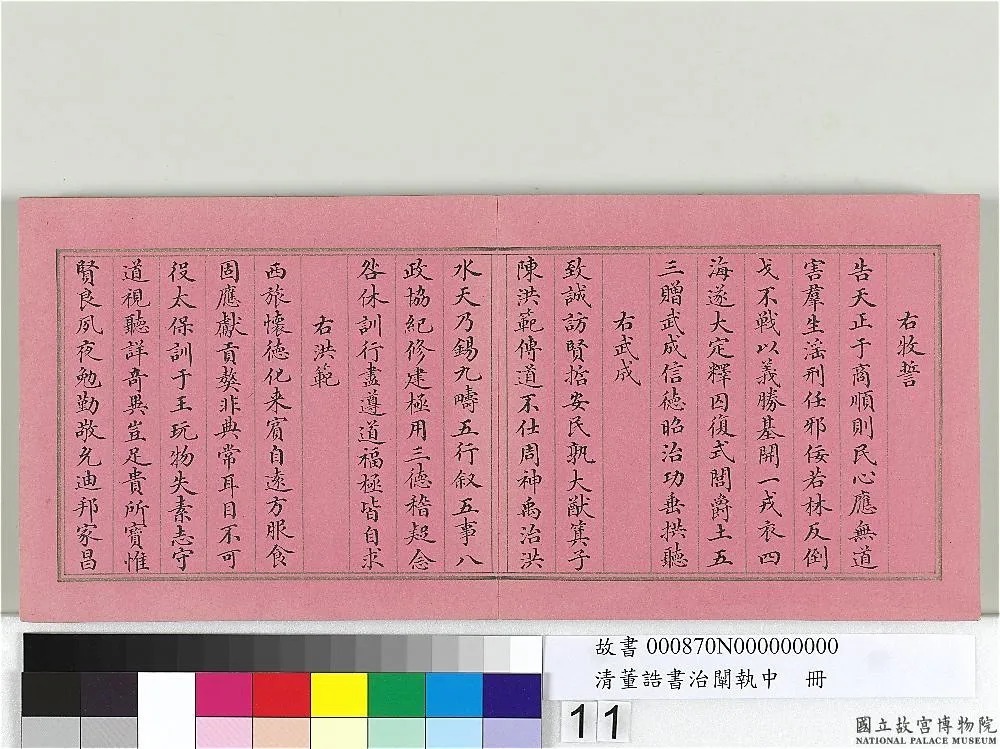 右牧誓
告天正于商順則民心應無道
害羣生滛刑任邪佞若林反倒
戈不戰以義勝基開一戎衣四
海遂大定釋囚復式閭爵土五
三贈武成信德昭治功垂拱聽
右武成
致誠訪賢括安民孰大猷箕子
陳洪範傳道不仕周神禹治洪
水天乃錫九疇五行叙五事八
政協紀修建極用三德稽疑念
咎休訓行盡遵道福極皆自求
右洪範
西旅懷德化来賓自逺方服食
固應獻貢獒非典常耳目不可
役太保訓于王玩物失素志守
道視聽詳奇異豈足貴所寶惟
賢良夙夜勉勤敬允迪邦家昌
故書 000870N000000000
清董誥書治闡執中 冊
11
國立故宮博物院
NATIONAL PALACE MUSEUM